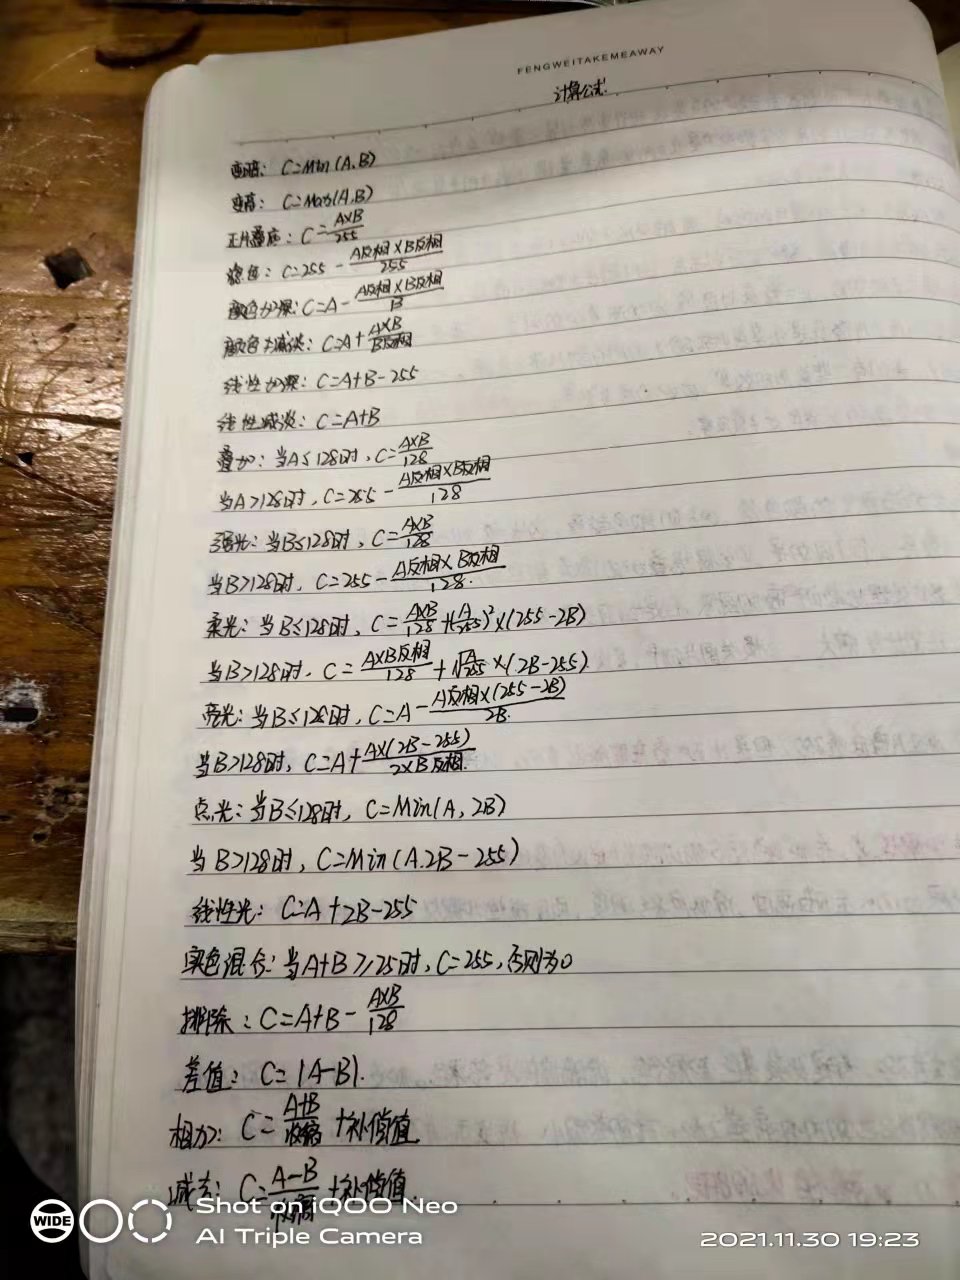 FENGWEITAKEMEAWAY
计算公式
变暗: C=Min(A,B)
变亮: C=Max(A,B)
正片叠底: C=A×B/255
滤色: C=255-A反相×B反相/255
颜色加深: C=A-A反相×B反相/B
颜色减淡: C=A+A×B/B反相
线性加深: C=A+B-255
线性减淡: C=A+B
叠加: 当A≤128时, C=A×B/128
当A>128时, C=255-A反相×B反相/128
强光: 当B≤128时, C=A×B/128
当B>128时, C=255-A反相×B反相/128.
柔光: 当B≤128时, C=A×B/128+(A/255)²×(255-2B)
当B>128时, C=A×B反相/128+√A/255×(2B-255)
亮光: 当B≤128时, C=A-A反相×(255-2B)/2B.
当B>128时, C=A+A×(2B-255)/2×B反相.
点光: 当B≤128时, C=Min(A, 2B)
当B>128时, C=Min(A.2B-255)
线性光: C=A+2B-255
实色混合: 当A+B≥25时, C=255, 否则为0
排除: C=A+B-A×B/128
差值: C=|A-B|.
相加: C=A+B/缩放+补偿值
减去: C=A-B/缩放+补偿值.
WIDE
Shot on iQOO Neo
AI Triple Camera
2021.11.30 19:23